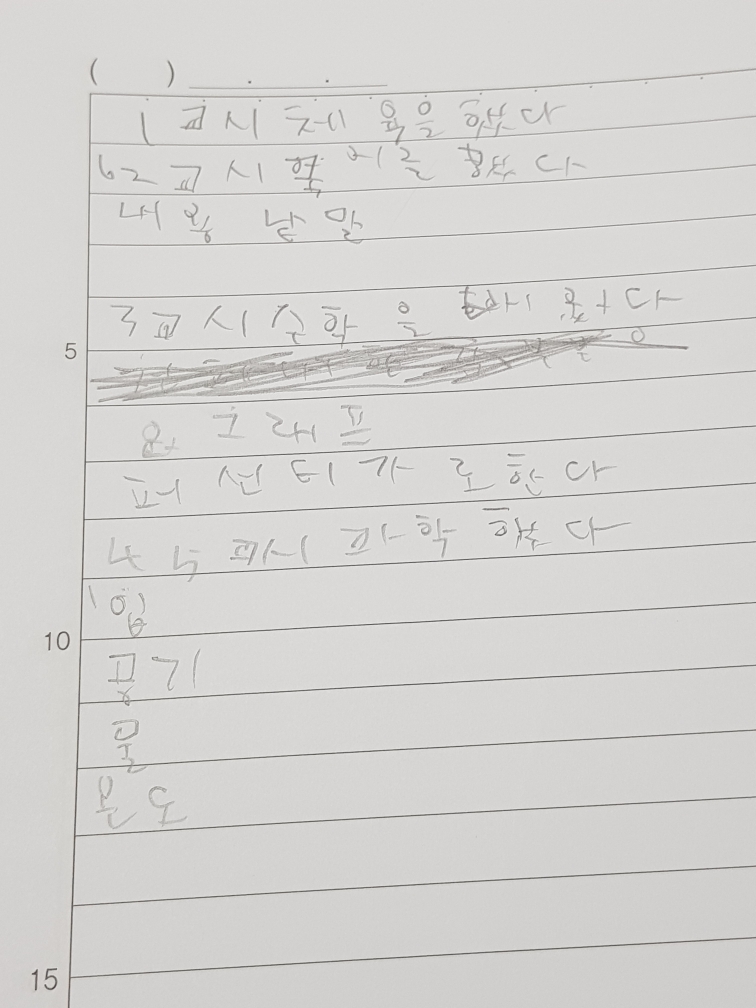 ( )
1교시 체육을 했다
62교시 쪽지를 했다
내용 낱말
3교시 수학을 하였다
5
원 그래프
퍼센티가로 한다
4 5 교시 과학 했다
입
10
공기
물
온도
15